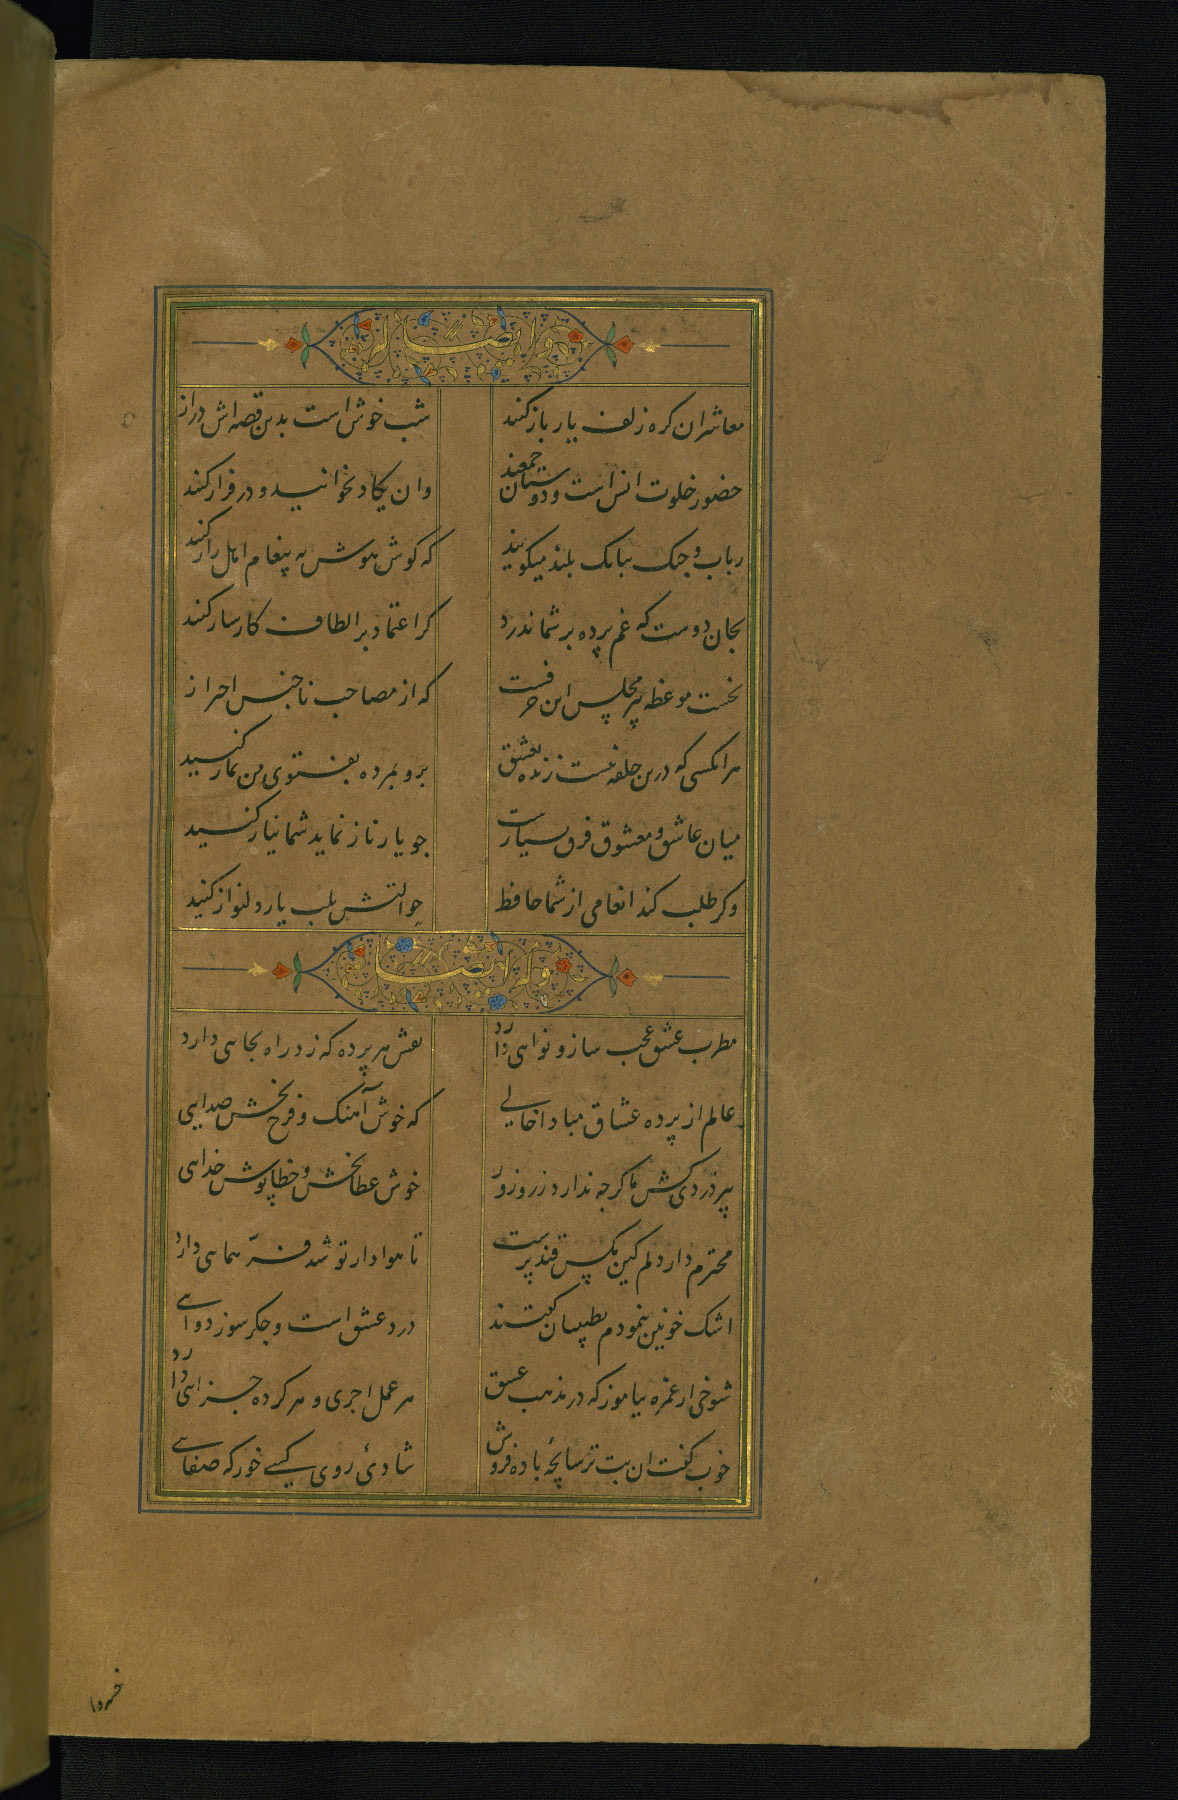 وله ایضا
معاشران کره زلف یار باز کنند شب خوش است بدین قصه اش دراز
حضور خلوت انس است و دوستان جمعند وان یکاد بخوانید و در فراز کنند
رباب و جنک ببانک بلند میکویند که کوش هوش به پیغام اهل راز کنند
بجان دوست که غم پرده بر شما ندرد کر اعتماد بر الطاف کارساز کنند
نخست موعظه پیر مجلس این حرفست که از مصاحب ناجنس احراز
هر انکسی که درین حلقه نیست زنده بعشق برو بمرده بفتوی من نماز کنید
میان عاشق و معشوق فرق بسیارست جو یار ناز نماید شما نیاز کنید
وکر طلب کند انعامی از شما حافظ حوالتش بلب یار دلنواز کنید
وله ایضا
مطرب عشق عجب ساز و نواهی دارد نقش هر پرده که زد راه بجاهی دارد
عالم از پرده عشاق مبادا خالی که خوش آهنک و فرح بخش صدایی
پیر دردی کش ما کرجه ندارد زر و زور خوش عطابخش و خطاپوش خداهی
محترم دار دلم کین مکس قند پرست تا هوادار تو شد فرّ هماهی دارد
اشک خونین بنمودم بطبیبان کفتند درد عشق است و جکر سوز دواهی
شوخی از غمزه بیاموز که در مذهب عشق هر عمل اجری و هر کرده جزاهی دارد
خوب کفت ان بت ترسابچهٔ باده فروش شادئ روی کسی خور که صفاهی
خسروا